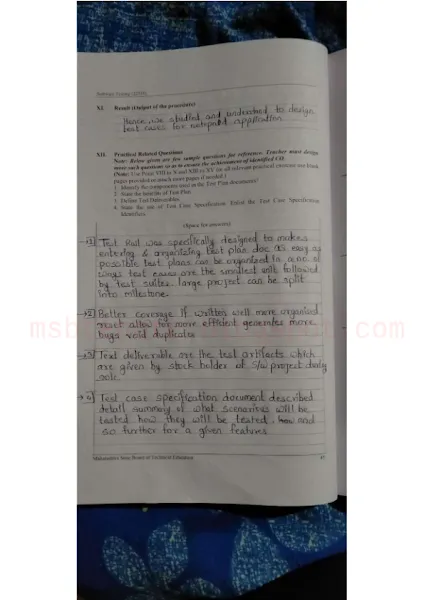 Software Testing (22518)
XI. Result (Output of the procedure)
Hence, we studied and understand to design
test cases for notepad application
XII. Practical Related Questions
Note: Below given are few sample questions for reference. Teacher must design
more such questions so as to ensure the achievement of identified CO.
(Note: Use Point VIII to X and XIII to XV for all relevant practical exercise use blank
pages provided or attach more pages if needed.)
1. Identify the components used in the Test Plan documents?
2. State the benefits of Test Plan
3. Define Test Deliverables
4. State the use of Test Case Specification. Enlist the Test Case Specification
Identifiers.
(Space for answers)
→ 1) Test Rail was specifically designed to makes
entering & organizing test plan doc as easy as
possible test plans can be organized in
test cases are the smallest unit followed
by test suites large project can be split
into milestone.
→ 2) Better coverage if written well more organised
allow for more efficient generates more
bugs void duplicates
→ 3) Text deliverable are the test artifacts which
are given by stock holder of S/w project
→ 4) Test case specification document described
detail summary of what scenarios will be
tested how they will be tested, and
so further for a given features
Maharashtra State Board of Technical Education 47